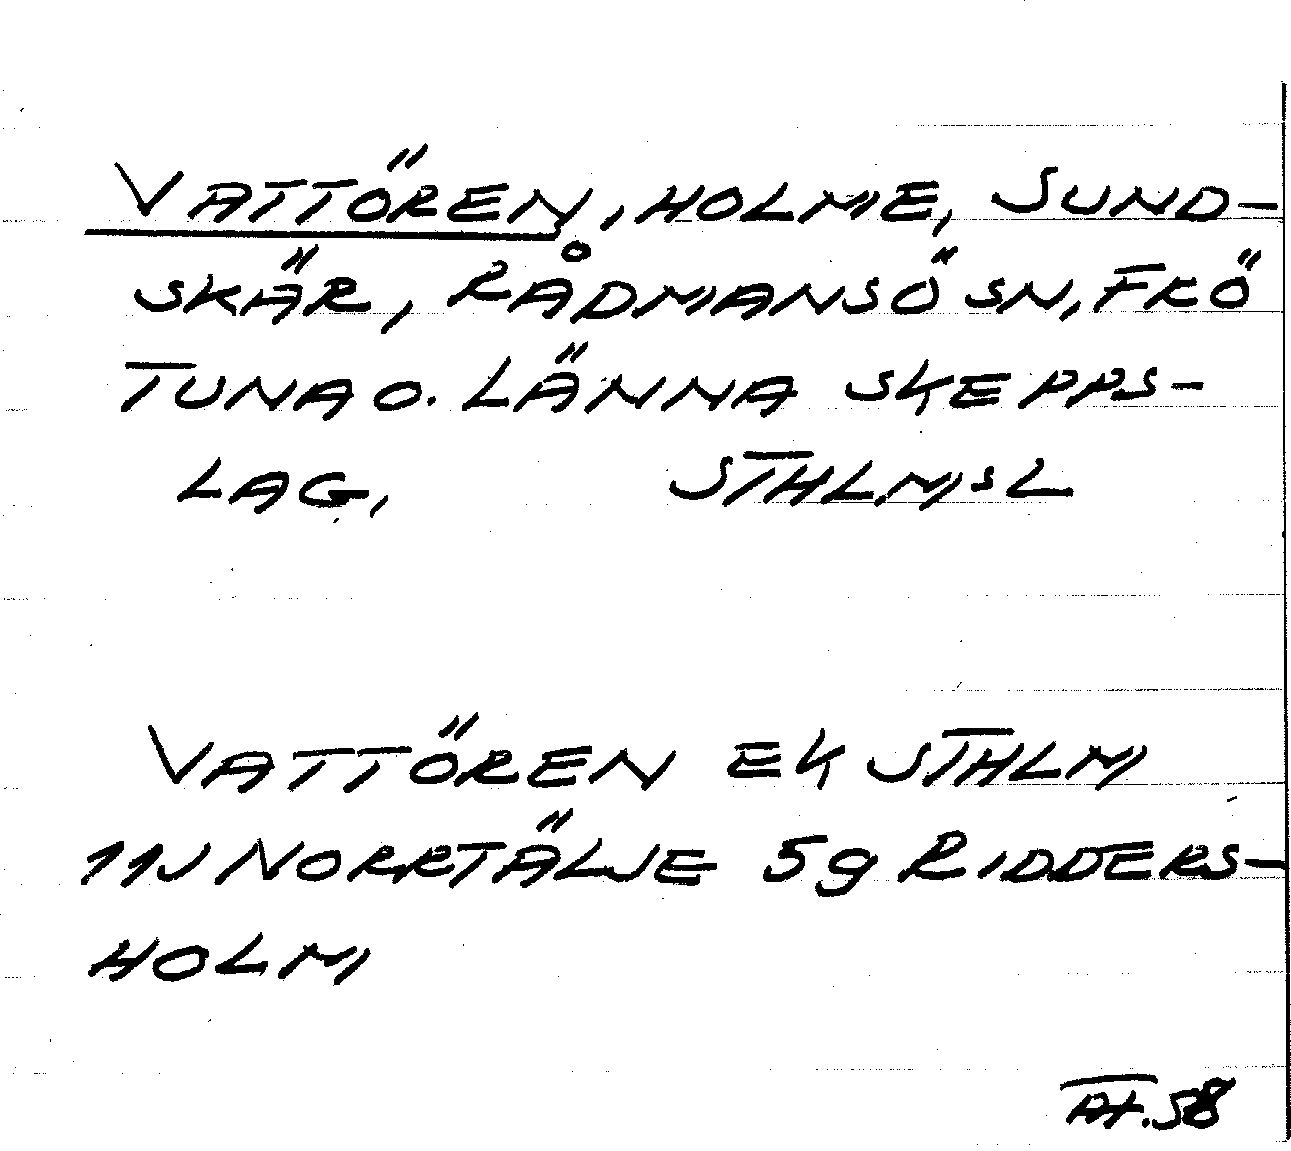 VATTÖREN, HOLME, SUND-
SKÄR, RÅDMANSÖ SN, FRÖ
TUNA O. LÄNNA SKEPPS-
LAG, STHLMSL
VATTÖREN EK STHLM
11J NORRTÄLJE 5g RIDDERS-
HOLM
58